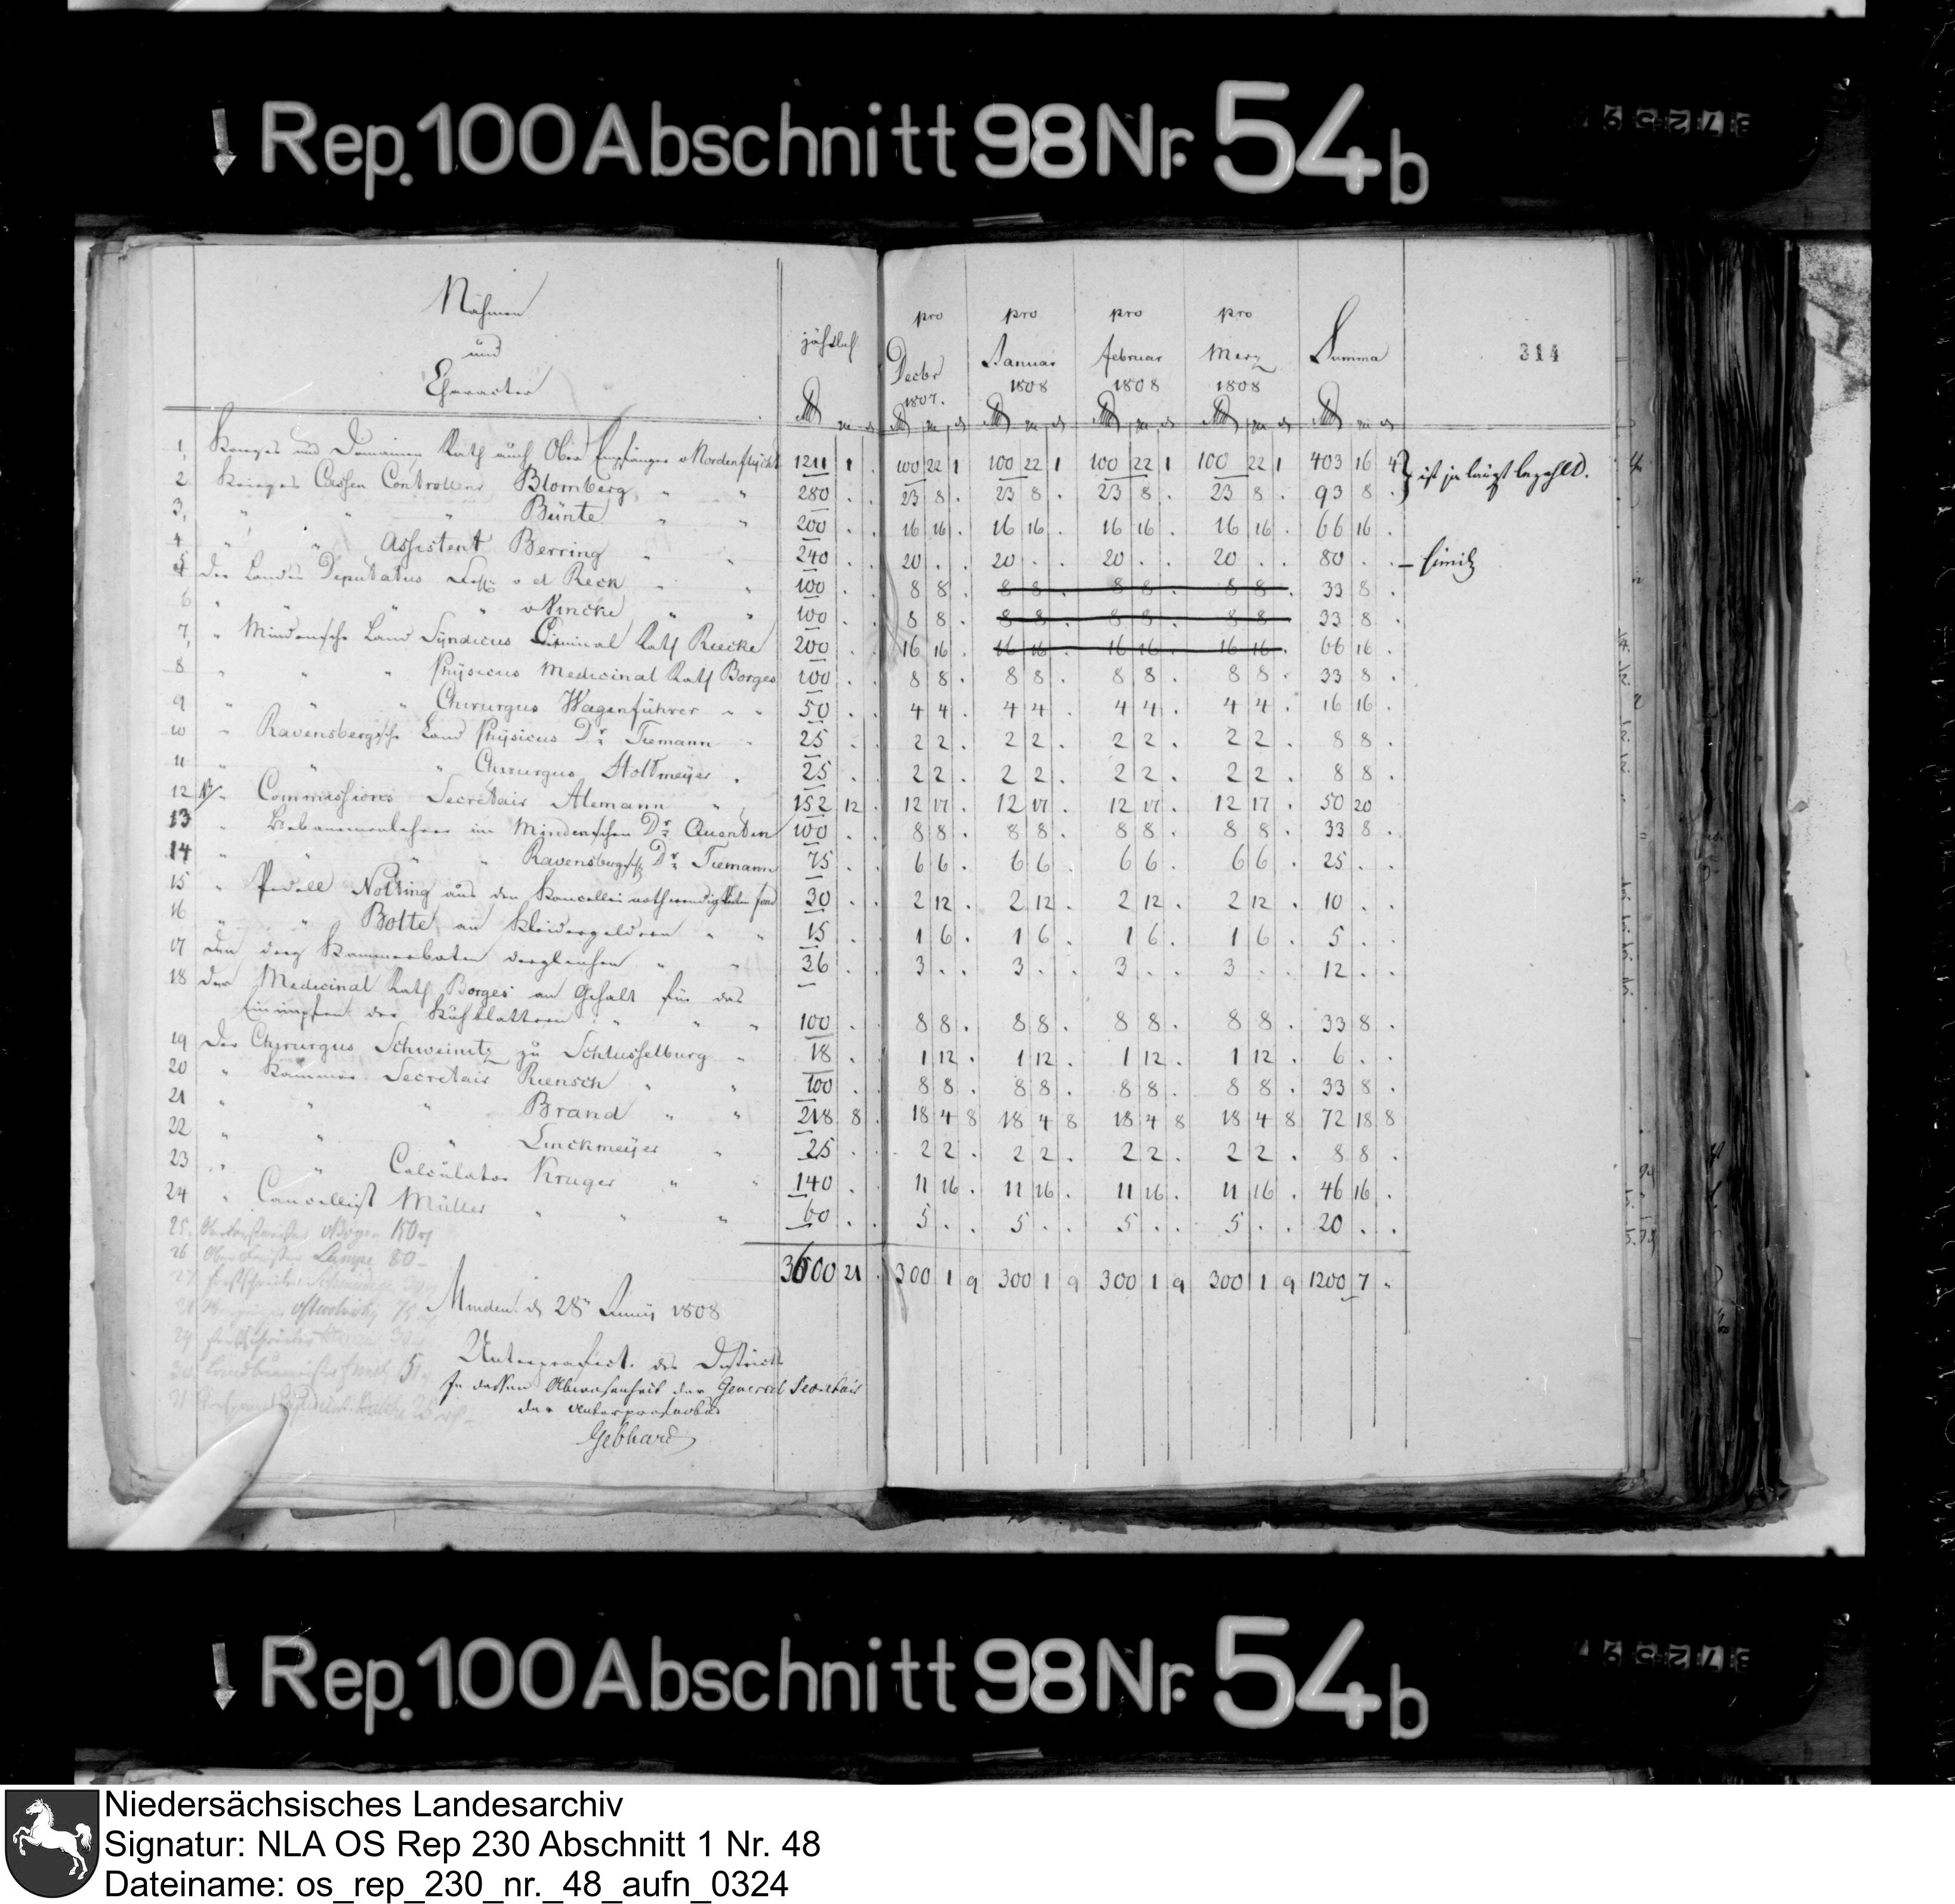 Rep. 100 Abschnitt 98 Nr. 54 b
Nahmen
und
Character
jährlich
pro Decbr 1807.
pro Januar 1808
pro Februar 1808
pro Merz 1808
Summa
314
1, Krieges und Domainen Rath auch Ober Empfänger v Nordenflycht 1211 1 . 100 22 1 100 22 1 100 22 1 100 22 1 403 16 4 ist ja längst bezahlt.
2 Krieges Cassen Controlleur Blomberg " " 280 . . 23 8 . 23 8 . 23 8 . 23 8 . 93 8 .
3, " " " Bünte " " 200 . . 16 16 . 16 16 . 16 16 . 16 16 . 66 16 .
4 " " Assistent Berring " " 240 . . 20 . . 20 . . 20 . . 20 . . 80 . .
5 Der Landes Deputatus v d Reck " " 100 . . 8 8 . 8 8 . 8 8 . 8 8 . 33 8 .
6 " " " v Vincke " " 100 . . 8 8 . 8 8 . 8 8 . 8 8 . 33 8 .
7, " Mindensche Land Syndicus Criminal Rath Riecke 200 . . 16 16 . 16 16 . 16 16 . 16 16 . 66 16 .
8 " " " Physicus Medicinal Rath Borges 100 . . 8 8 . 8 8 . 8 8 . 8 8 . 33 8 .
9 " " " Chirurgus Wagenführer " " 50 . . 4 4 . 4 4 . 4 4 . 4 4 . 16 16 .
10 " Ravensbergsche Land Physicus Dr Tiemann " 25 . . 2 2 . 2 2 . 2 2 . 2 2 . 8 8 .
11 " " " Chirurgus Stoltmeyer . 25 . . 2 2 . 2 2 . 2 2 . 2 2 . 8 8 .
12 " Commissions Secretair Alemann " " 152 12 . 12 17 . 12 17 . 12 17 . 12 17 . 50 20
13 " Hebammenlehrer im Mindenschen Dr Quenten 100 . . 8 8 . 8 8 . 8 8 . 8 8 . 33 8 .
14 " " " Ravensbergsch Dr Tiemann 75 . . 6 6 . 6 6 . 6 6 . 6 6 . 25 . .
15 " Pedell Nolting aus den 30 . . 2 12 . 2 12 . 2 12 . 2 12 . 10 . .
16 " " Botte an Kleidergeldern " " 15 . . 1 6 . 1 6 . 1 6 . 1 6 . 5 . .
17 Den drey Kammerboten dergleichen " " 36 . . 3 . . 3 . . 3 . . 3 . . 12 . .
18 Der Medicinal Rath Borges an Gehalt für das
Einimpfen der Kuhblattern " " " 100 . . 8 8 . 8 8 . 8 8 . 8 8 . 33 8 .
19 Der Chirurgus Schweinitz zu Schlusselburg " 18 . . 1 12 . 1 12 . 1 12 . 1 12 . 6 . .
20 " Kammer Secretair Riensch " " 100 . . 8 8 . 8 8 . 8 8 . 8 8 . 33 8 .
21 " " " Brand " " 218 8 . 18 4 8 18 4 8 18 4 8 18 4 8 72 18 8
22 " " " Linckmeyer " 25 . . 2 2 . 2 2 . 2 2 . 2 2 . 8 8 .
23 " " Calculator Kruger " " 140 . . 11 16 . 11 16 . 11 16 . 11 16 . 46 16 .
24 " Cancellist Müller " " " 60 . . 5 . . 5 . . 5 . . 5 . . 20 . .
25.
26 80 -
3600 21 . 300 1 9 300 1 9 300 1 9 300 1 9 1200 7 .
Minden d 28n Juny 1808
Unterpraefect. des Districts
In dessen Abwesenheit der General Secretair
der Unterpraefectur
Gebhard
Rep. 100 Abschnitt 98 Nr. 54 b
Niedersächsisches Landesarchiv
Signatur: NLA OS Rep 230 Abschnitt 1 Nr. 48
Dateiname: os_rep_230_nr._48_aufn_0324